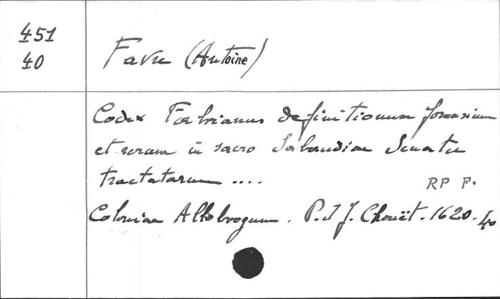 451
40
Favre (Antoine)
Codex Fabrianus definitionum forensium
et rerum in sacro Sabaudiae Senatu
tractatarum ....
RP F.
Coloniae Allobrogum. P. J J. Chouët. 1620. 40